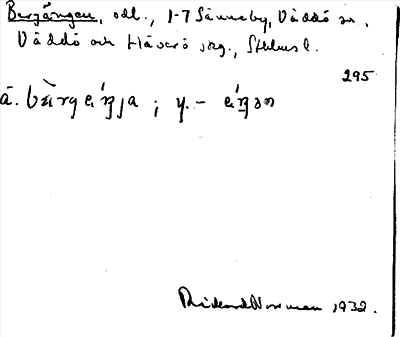 Bergängen, odl., 1-7 Sänneby, Väddö sn.,
Väddö och Häverö skg., Sthlms l.
295
ä. bærgeŋja ; y. - eŋən
Rickard Norrman 1932.